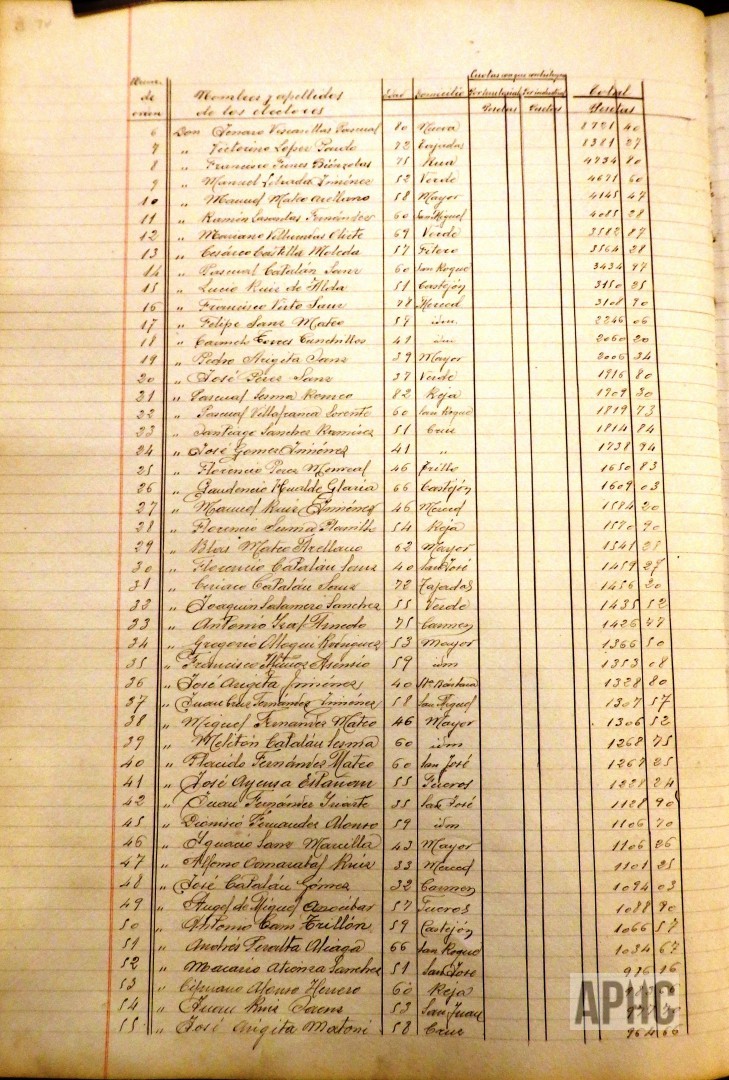 Núm. de orden Nombres y apellidos de los electores Edad Domicilio Cuotas con que contribuyen Total
Por territorial Por industrial
Pesetas Pesetas Pesetas
6 Don Pascual 80 Nueva 1721 40
7 " Victorino López Pardo 72 Cajadas 1381 27
8 " Francisco 75 Rua 4734 80
9 " Manuel Jiménez 52 Verde 4671 60
10 " Manuel Mateo Arellano 58 Mayor 4145 47
11 " Ramón Fernández 60 San Miguel 4085 28
12 " Mariano 69 Verde 3582 87
13 " Cesáreo Castella 57 Fitero 3564 28
14 " Pascual Catalán Sanz 60 San Roque 3434 97
15 " Lucio Ruiz de 51 Castejón 3150 25
16 " Francisco Sanz 78 Merced 3108 90
17 " Felipe Sanz Mateo 59 idm. 2246 06
18 " Carmelo 49 idm. 2060 20
19 " Pedro Angita Sanz 39 Mayor 2006 34
20 " José Pérez Sanz 37 Verde 1986 80
21 " Pascual Sesma Romeo 82 Roja 1909 30
22 " Pascual Villafranca Lorente 60 San Roque 1819 73
23 " Santiago Sánchez Ramírez 51 Cruz 1814 84
24 " José Gómez Jiménez 41 " 1738 94
25 " Florencio Pérez Monreal 46 Trillo 1650 83
26 " Gaudencio Hualde Gloria 66 Castejón 1609 03
27 " Manuel Ruiz Jiménez 46 Merced 1584 20
28 " Florencio Sesma 54 Roja 1580 90
29 " Blas Mateo Arellano 62 Mayor 1541 25
30 " Florencio Catalán Sanz 40 San José 1459 27
31 " Ciriaco Catalán Sanz 72 Tajadas 1456 20
32 " Joaquín Salamero Sánchez 55 Verde 1435 52
33 " Antonio Arnedo 75 Carmen 1426 47
34 " Gregorio Rodríguez 53 Mayor 1366 50
35 " Francisco Muñoz Asensio 59 idm 1353 08
36 " José Angita Jiménez 40 Sta Bárbara 1328 80
37 " Juan Cruz Fernández Jiménez 58 San Miguel 1307 57
38 " Miguel Fernández Mateo 46 Mayor 1306 52
39 " Melitón Catalán Sesma 60 idm 1268 75
40 " Plácido Fernández Mateo 60 San José 1267 25
41 " José Ayensa 55 Fueros 1228 24
42 " Juan Fernández Iriarte 35 San José 1128 90
45 " Dionisio Fernández Alonso 59 idm 1106 70
46 " Ignacio Sanz Marcilla 43 Mayor 1106 26
47 " Alfonso Ruiz 33 Merced 1101 25
48 " José Catalán Gómez 32 Carmen 1094 03
49 " Ángel de Miguel 57 Fueros 1088 90
50 " Antonio Trullón 59 Castejón 1066 57
51 " Andrés Peralta Aliaga 66 San Roque 1034 67
52 " Macario Atienza Sánchez 51 San José 976 16
53 " Cipriano Alonso Herrero 60 Roja
54 " Juan Ruiz 53 San Juan
55 " José Angita Matoni 58 Cruz 964 66
APHC